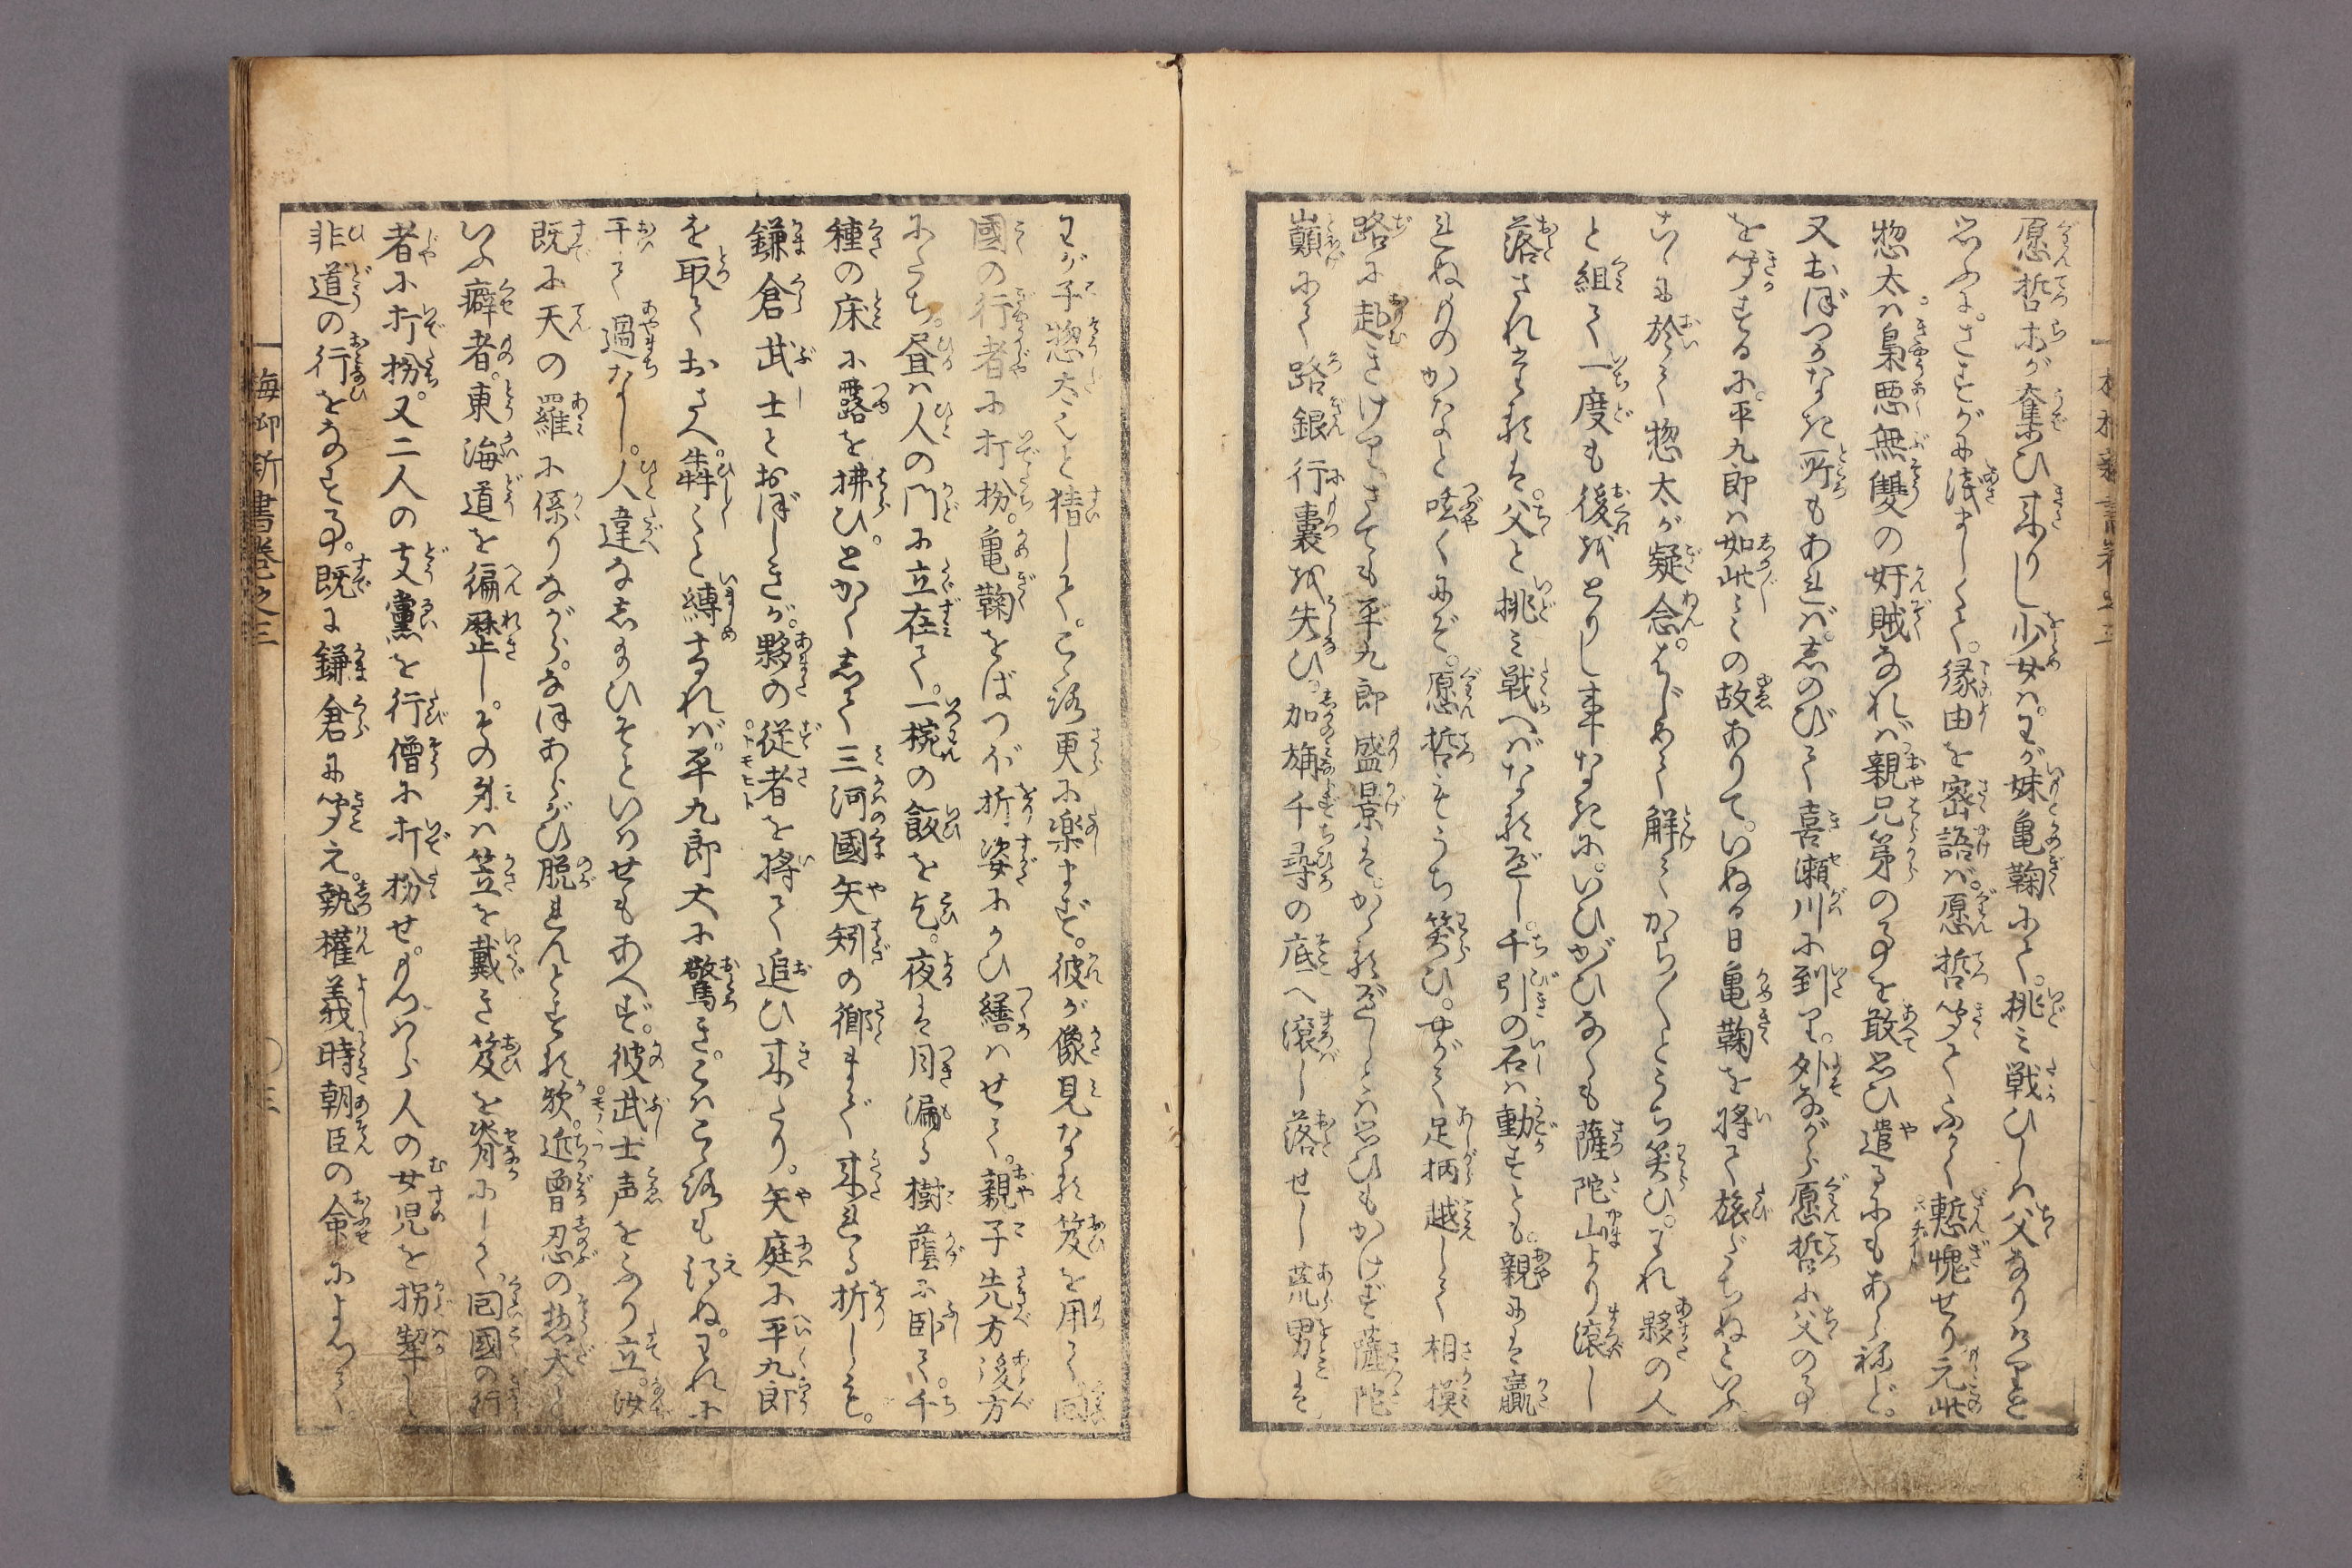 愿哲等が奪ひ來りし少女は。わが妹亀鞠にて。挑み戦ひしは父なりけりと
思ふに。さすがに浅ましくて。縁由を密語ば。愿哲聞てふかく慙愧せり。元此
惣太は。梟悪無雙の奸賊なれば。親兄弟の事を敢思ひ遣るにもあらねど。
又おぼつかなき所もあれば。志のびて喜瀬川に到り。外ながら愿哲に父の事
を聞するに。平九郎は如此〻の故ありて。いぬる日亀鞠を将て旅だちぬといふ
こゝに於て惣太が疑念。はじめて解てから〳〵とうち笑ひ。われ夥の人
と組て一度も後れをとりし事なきに。いひがひなくも薩陀山より滾し
落されたるは。父と挑み戦へばなるべし。千引の石は動すとも。親には贏
れぬものかなと呟くにぞ。愿哲もうち笑ひ。やがて足柄越して相模
路に赴きけり。さても平九郎盛景は。かゝるべしとは思ひもかけず薩陀
巓にて路銀行囊を失ひ。加旃千尋の底へ滾し落せし荒男は
わが子惣太也と猜して。こゝろ更に楽まず。彼が像見なる笈を用て回
國の行者に打扮。亀鞠をばつぼ折姿にかひ繕はせて。親子先方後方
にたち。昼は人の門に立在て。一椀の飯を乞。夜は月漏る樹蔭に臥て。千
種の床に露を拂ひ。とかくして三河國矢矧の郷まで來れる折しも。
鎌倉武士とおぼしきが。夥の従者を将て追ひ來たり。矢庭に平九郎
を取ておさへ。犇〻と縛すれば。平九郎大に驚き。こはこゝろも得ぬ。われに
於て過なし。人違なしのひそといはせもあへず。彼武士声をふり立。汝
既に天の羅に係りながら。なほあらがひ脱れんとする歟。近曽忍の惣太と
いふ癖者。東海道を徧歴し。その身は笠を戴き笈を脊にして。回國の行
者に打扮。又二人の支黨を行僧に打扮せ。もつはら人の女児を拐掣し
非道の行をなすよし。既に鎌倉に聞え。執權義時朝臣の命によつて
梅柳新書巻之三
三